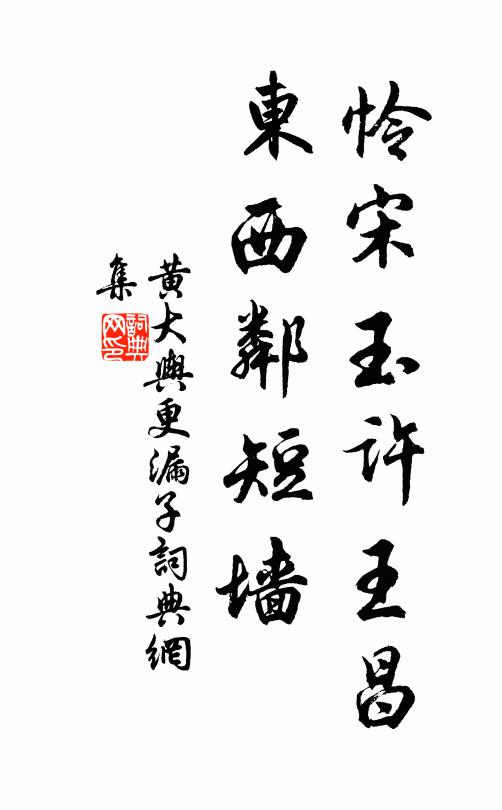 怜宋玉許王昌
東西鄰短墻
黄大輿更漏子詞典網
集
詞典網印